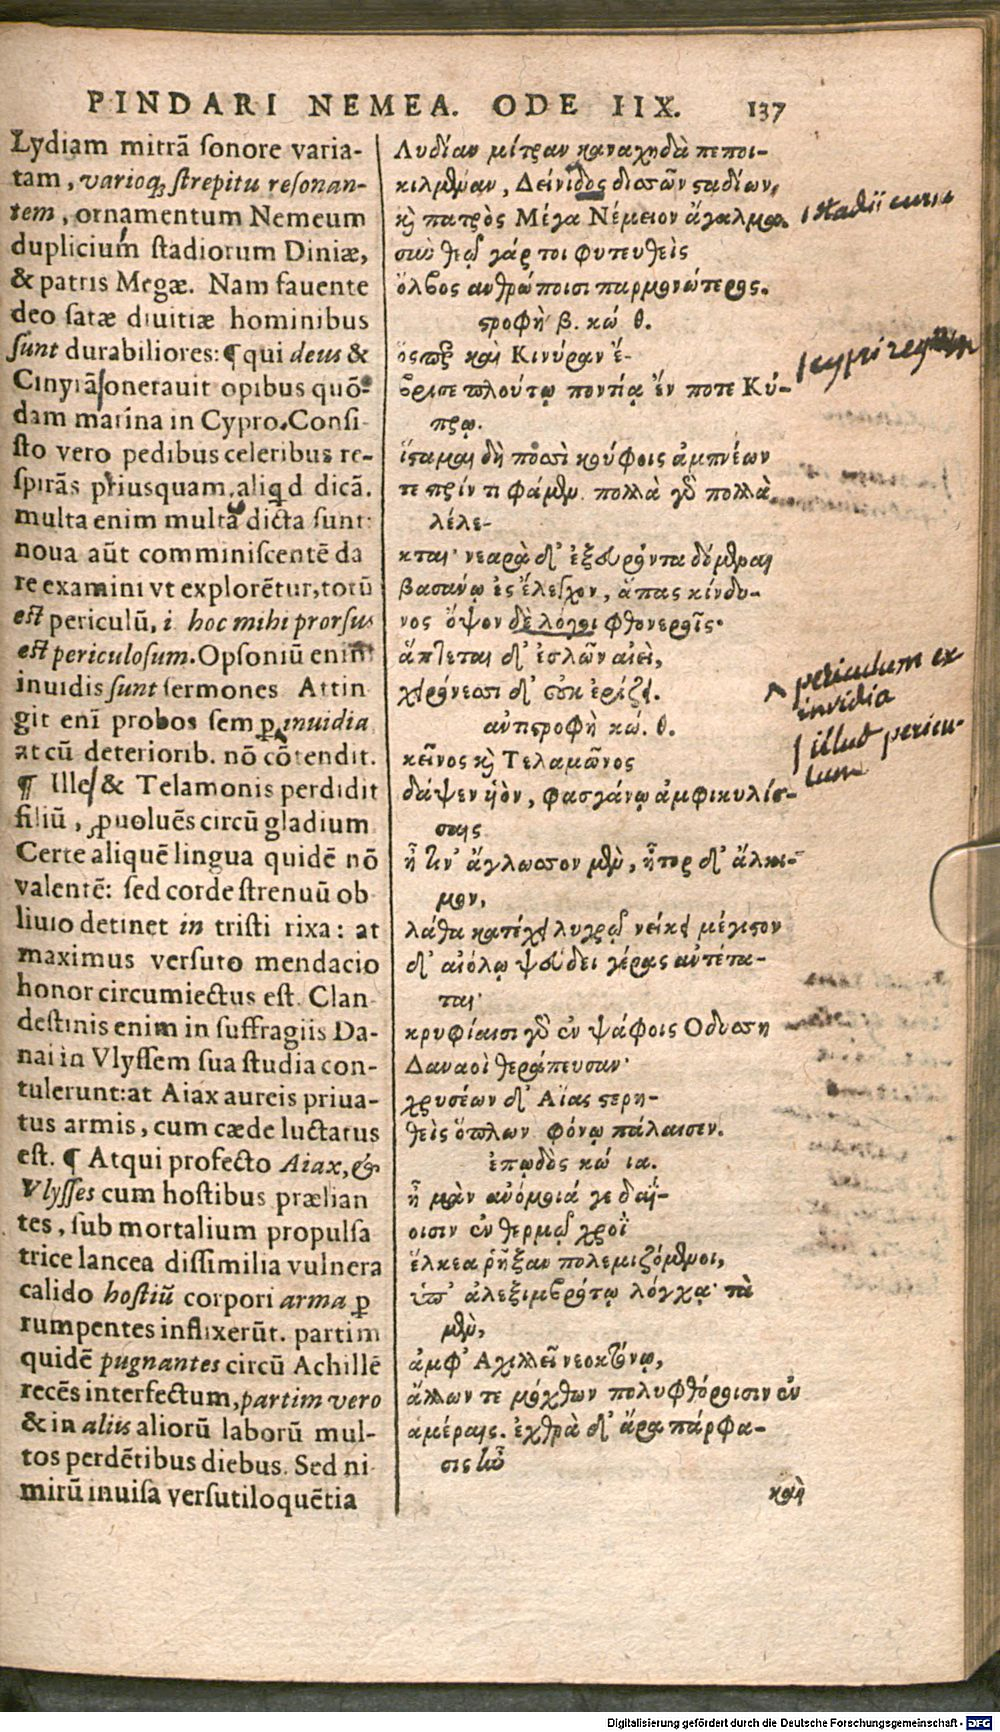 PINDARI NEMEA. ODE IIX. 137
Lydiam mitrã sonore varia-
tam, varioq; strepitu resonan-
tem, ornamentum Nemeum
duplicium stadiorum Diniæ,
& patris Megæ. Nam fauente
deo satæ diuitiæ hominibus
sunt durabiliores: ¶ qui deus &
Cinyrã onerauit opibus quõ-
dam marina in Cypro. Consi-
sto vero pedibus celeribus re-
spirãs priusquam aliqd dicã.
multa enim multa dicta sunt:
noua aũt comminiscentẽ da
re examini vt explorẽtur, totũ
est periculũ, i. hoc mihi prorsus
est periculosum. Opsoniũ enim
inuidis sunt sermones Attin
git enĩ probos semp inuidia
at cũ deteriorib. nõ cõtendit.
¶ Illes & Telamonis perdidit
filiũ, puoluẽs circũ gladium
Certe aliquẽ lingua quidẽ nõ
valentẽ: sed corde strenuũ ob
liuio detinet in tristi rixa: at
maximus versuto mendacio
honor circumiectus est. Clan
destinis enim in suffragiis Da-
nai in Vlyssem sua studia con-
tulerunt: at Aiax aureis priua-
tus armis, cum cæde luctatus
est. ¶ Atqui profecto Aiax, &
Vlysses cum hostibus prælian
tes, sub mortalium propulsa
trice lancea dissimilia vulnera
calido hostiũ corpori arma p
rumpentes inflixerũt. partim
quidẽ pugnantes circũ Achillẽ
recẽs interfectum, partim vero
& in aliis aliorũ laborũ mul-
tos perdẽtibus diebus. Sed ni
mirũ inuisa versutiloquẽtia
Λυδίαν μίτραν καναχηδὰ πεποι-
κιλμέναν, Δείνιδος δισσῶν σταδίων,
καὶ πατρὸς Μέγα Νέμειον ἄγαλμα.
σὺν θεῷ γάρ τοι φυτευθεὶς
ὄλβος ἀνθρώποισι παρμονώτερος.
στροφὴ β. κώ θ.
ὅσπερ καὶ Κινύραν ἔ-
βρισε πλούτῳ ποντίᾳ ἔν ποτε Κύ-
πρῳ.
ἵσταμαι δὴ ποσσὶ κούφοις ἀμπνέων
τε πρίν τι φάμεν. πολλὰ γὰρ πολλὰ
λέλε-
κται· νεαρὰ δ' ἐξευρόντα δόμεναι
βασάνῳ ἐς ἔλεγχον, ἅπας κίνδυ-
νος ὄψον δὲ λόγοι φθονεροῖς.
ἅπτεται δ' ἐσλῶν αἰεὶ,
χειρόνεσσι δ' οὐκ ἐρίζει.
αὐτιστροφὴ κώ. θ.
κεῖνος καὶ Τελαμῶνος
δάψεν υἱὸν, φασγάνῳ ἀμφικυλίσ-
σαις
ἦ τιν' ἄγλωσσον μὲν, ἦτορ δ' ἄλκι-
μον,
λάθα κατέχει λυγρῷ νείκει μέγιστον
δ' αἰόλῳ ψεύδει γέρας αὐτέτα-
ται·
κρυφίαισι γὰρ ἐν ψάφοις Οδυσση
Δαναοὶ θεράπευσαν·
χρυσέων δ' Αἴας στερη-
θεὶς ὅπλων φόνῳ πάλαισεν.
ἐπῳδὸς κώ ια.
ἦ μὰν ἀνόμοιά γε δαΐ-
οισιν ἐν θερμῷ χροῒ
ἕλκεα ῥῆξαν πολεμιζόμενοι,
ὑπ' ἀλεξιμβρότῳ λόγχᾳ· τὰ
μὲν,
ἀμφ' Αχιλλεῖ νεοκτόνῳ,
ἄλλων τε μόχθων πολυφθόροισιν ἐν
ἁμέραις. ἐχθρὰ δ' ἄρα πάρφα-
σις ἦν
καὶ
stadii cursu
cypri regem
periculum ex
invidia
illud pericu-
lum
Digitalisierung gefördert durch die Deutsche Forschungsgemeinschaft - DFG